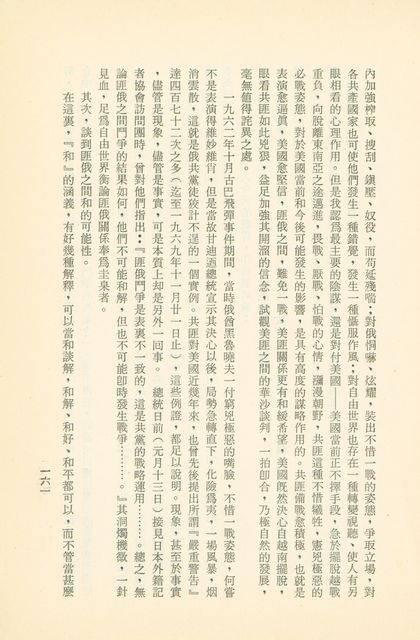 內加強榨取、搜刮、鎭壓、奴役，而苟延殘喘；對俄恫嚇、炫耀，裝出不惜一戰的姿態，爭取立場，對
各共產國家也可使他們發生一種錯覺，發生一種懾服作風；對自由世界也存在一種轉變視聽、使人有另
眼相看的心理作用。但是我認爲最主要的陰謀，還是對付美國——美國當前正不擇手段，急於擺脫越戰
重負，向脫離東南亞之途邁進，畏戰、厭戰、怕戰的心情，瀰漫朝野，共匪這種不惜犧牲，憲兇極惡的
必戰姿態，對於美國當前和今後可能發生的影響，是具有高度的謀略作用的。共匪備戰愈積極，也就是
表演愈逼眞，美國愈堅信，匪俄之間，難免一戰，美匪關係更有和緩希望，美國旣然決心自越南擺脫，
眼看共匪如此兇狠，益足加強其開溜的信念，試觀美匪之間的華沙談判，一拍卽合，乃極自然的發展，
毫無值得詫異之處。
一九六二年十月古巴飛彈事件期間，當時俄酋黑魯曉夫一付窮兇極惡的嘴臉，不惜一戰姿態，何嘗
不是表演得維妙維肖，但是當故甘迺迺總統宣示其決心以後，局勢急轉直下，化險爲夷，一場風暴，烟
消雲散，這就是俄共黨徒狡計不逞的一個實例。共匪對美國近幾年來，也曾先後提出所謂『嚴重警告』
達四百七十二次之多（迄至一九六九年十一月廿一日止），這些例證，都足以說明。現象，甚至於事實
，儘管是現象，儘管是事實，可是本質上却是另外一回事。　總統日前（元月十三日）接見日本外籍記
者協會訪問團時，曾對他們指出：『匪俄鬥爭是表裏不一致的，這是共黨的戰略運用………。總之，無
論匪俄之間鬥爭的結果如何，他們不可能和解，但也不可能卽時發生戰爭………。』其洞燭機微，一針
見血，足爲自由世界衡論匪俄關係奉爲圭臬者。
其次，談到匪俄之間和的可能性。
在這裏，『和』的涵義，有好幾種解釋，可以當和談解，和解、和好、和平都可以，而不管當甚麼
一六一